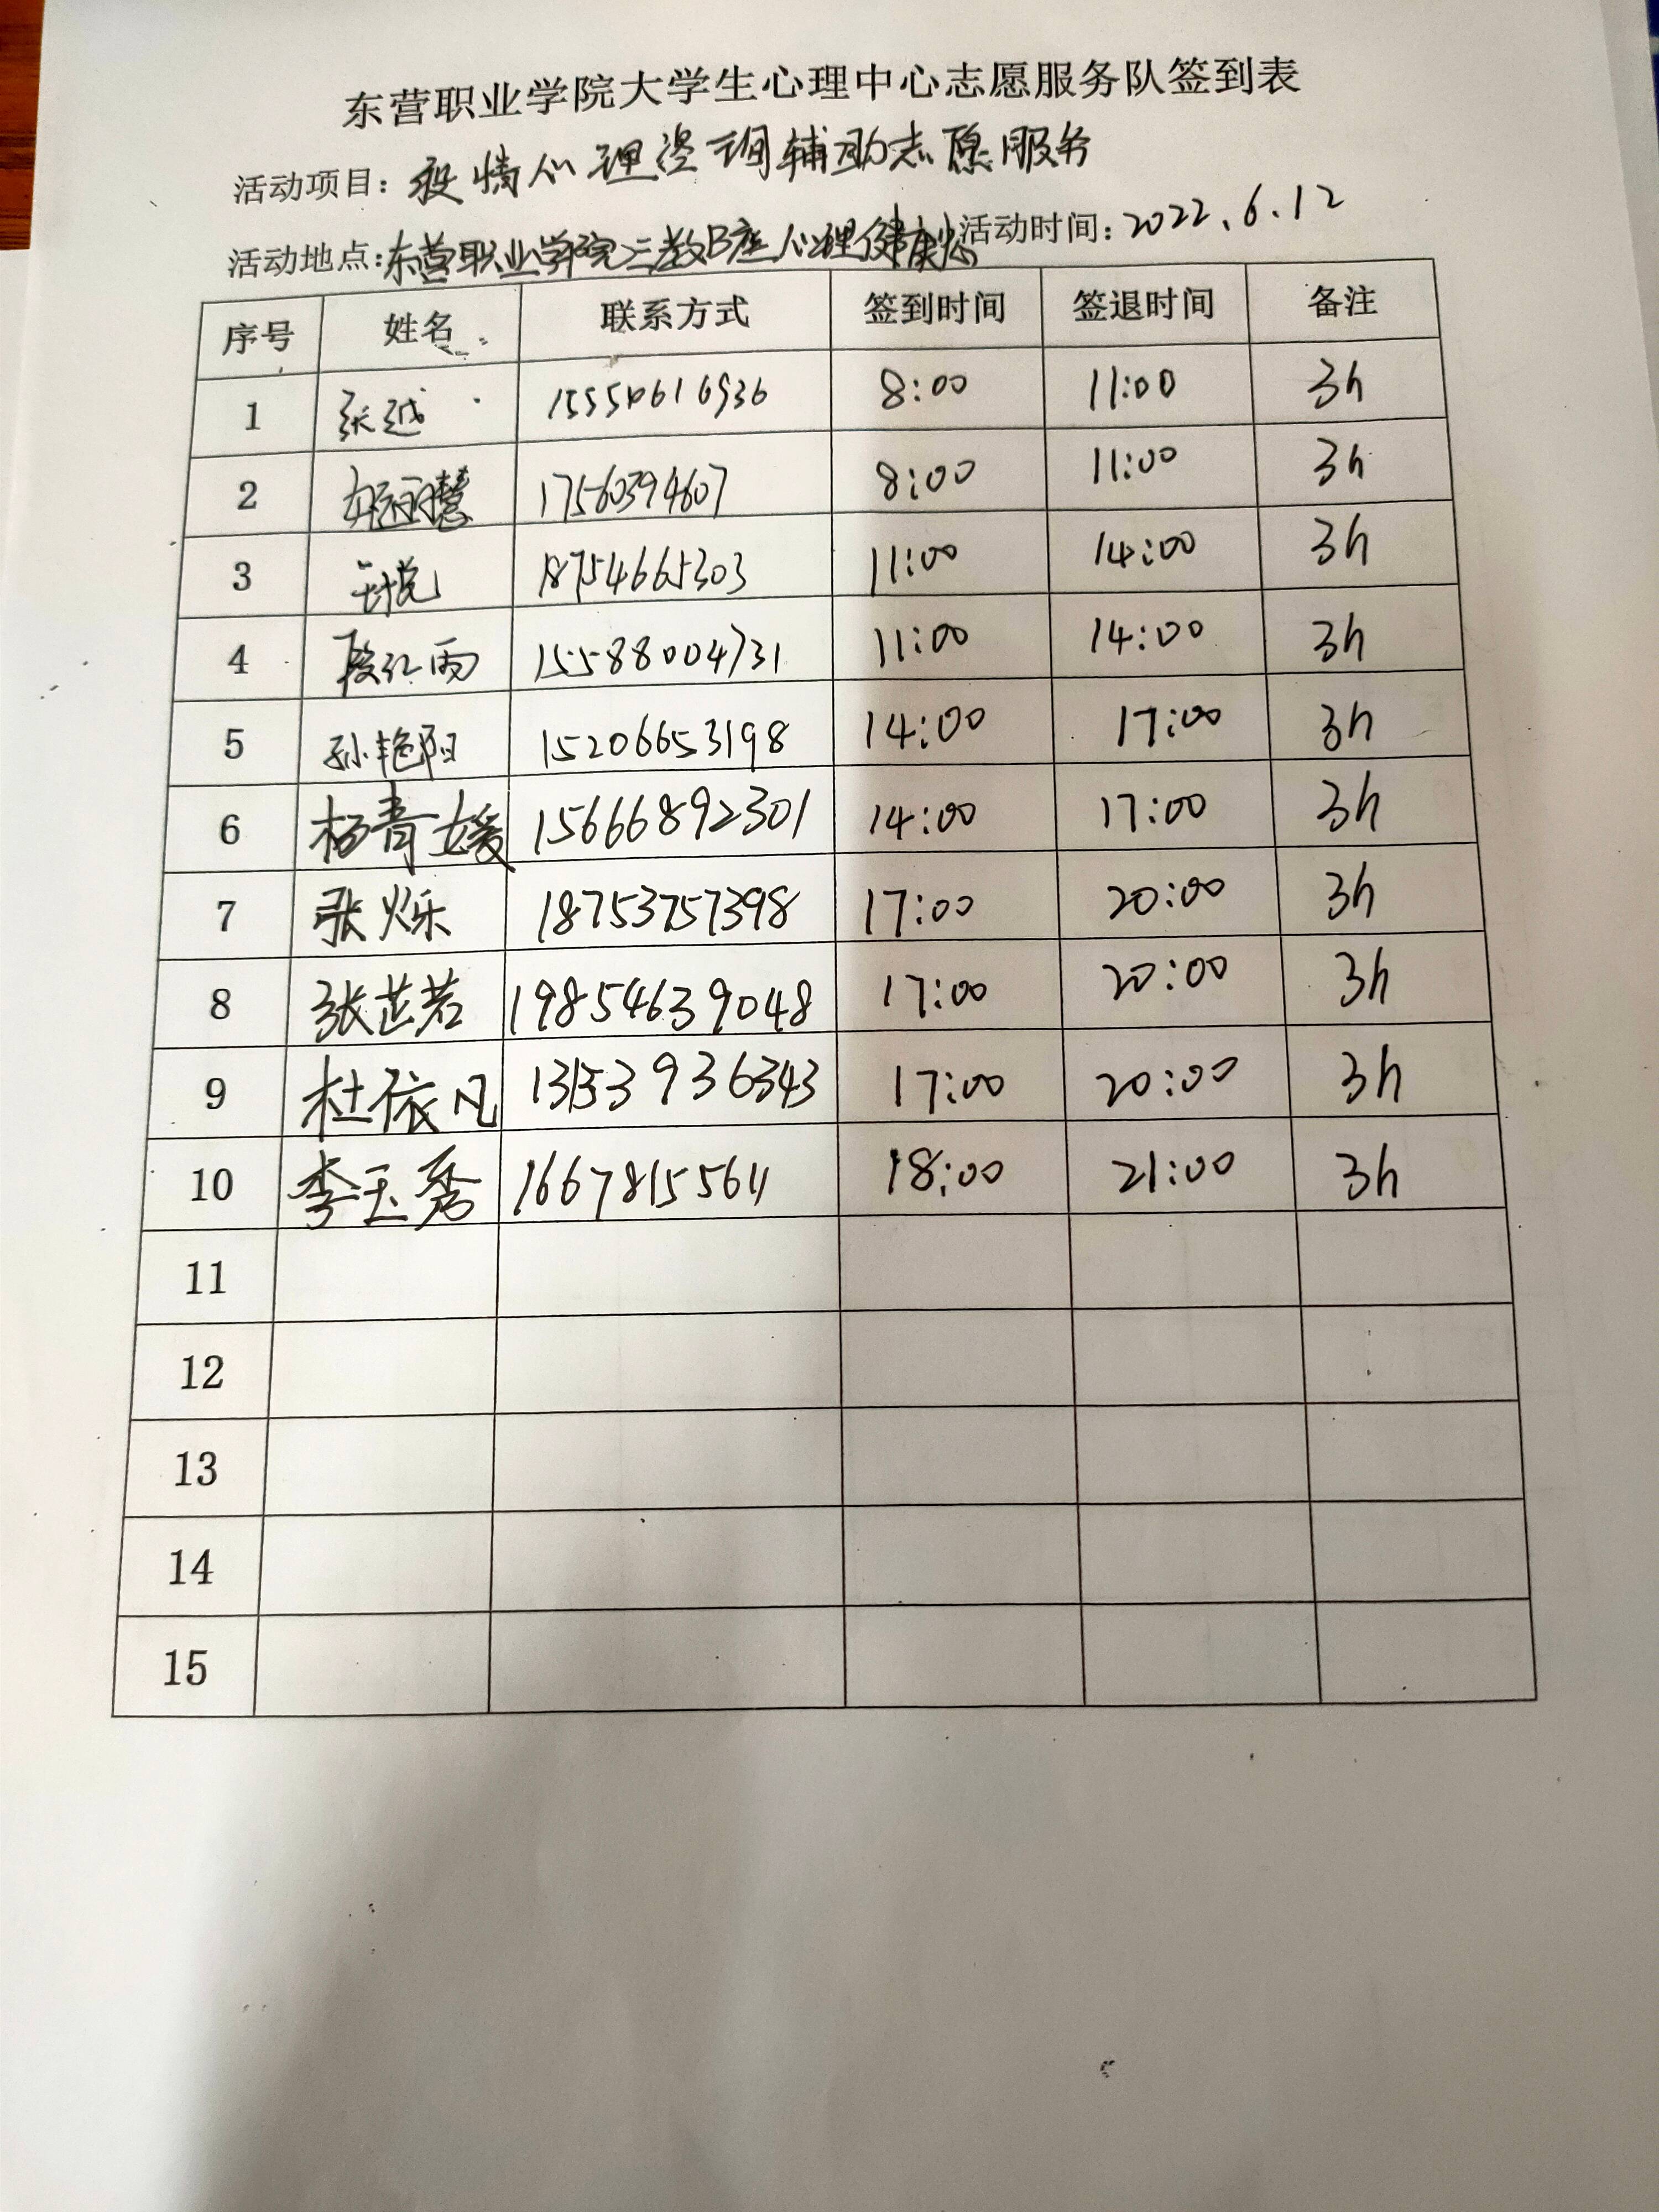 东营职业学院大学生心理中心志愿服务队签到表
活动项目: 疫情心理咨询辅助志愿服务
活动地点:东营职业学院三教B座心理健康 活动时间: 2022.6.12
序号 姓名 联系方式 签到时间 签退时间 备注
1 张越 15550616936 8:00 11:00 3h
2 17560394607 8:00 11:00 3h
3 18754665303 11:00 14:00 3h
4 段红雨 15588004731 11:00 14:00 3h
5 孙艳阳 15206653198 14:00 17:00 3h
6 杨青媛 15666892301 14:00 17:00 3h
7 张烁 18753757398 17:00 20:00 3h
8 张芷若 19854639048 17:00 20:00 3h
9 杜依凡 17:00 20:00 3h
10 李玉秀 16678155611 18:00 21:00 3h
11
12
13
14
15